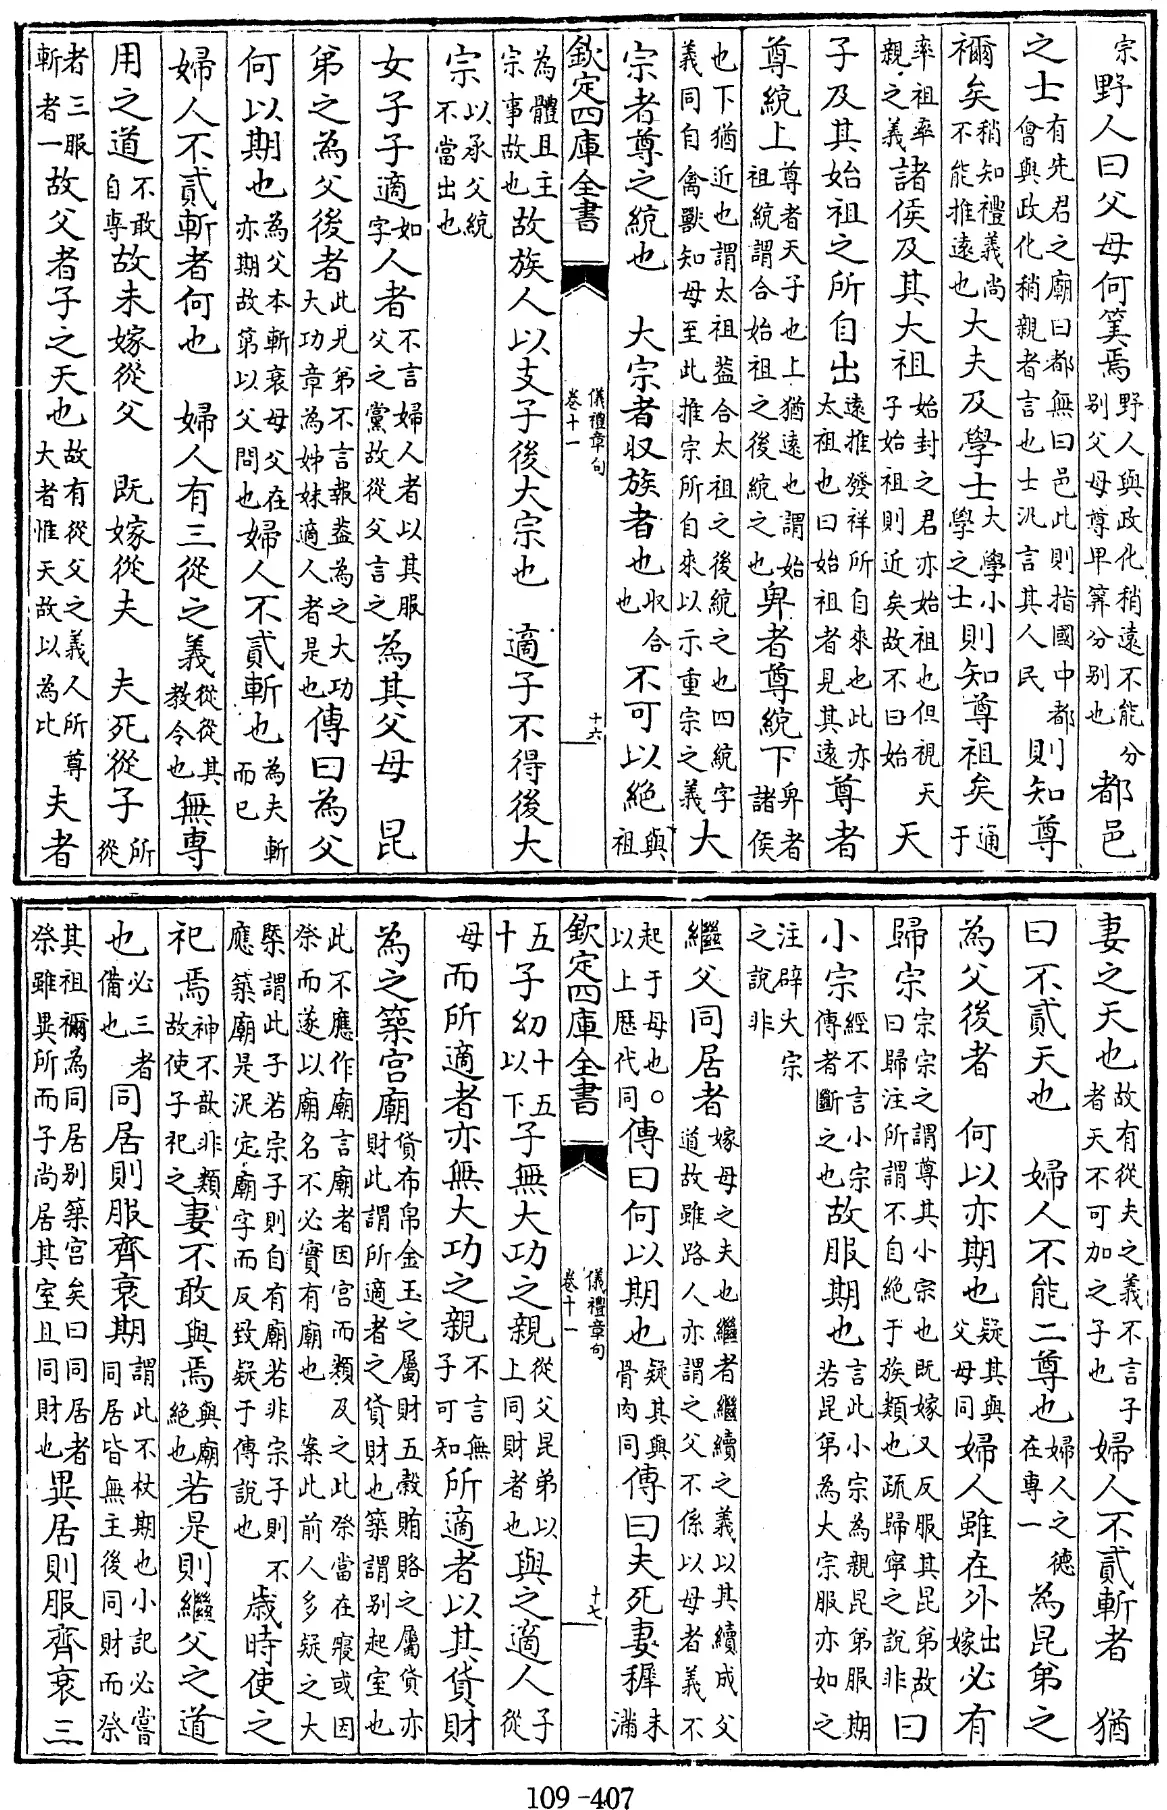 宗野人曰父母何筭焉野人與政化稍遠不能分别父母尊卑筭分别也都邑
之士有先君之廟曰都無曰邑此則指國中都會與政化稍親者言也士汎言其人民則知尊
禰矣稍知禮義尚不能推遠也大夫及學士大學小學之士則知尊祖矣通于
率祖率親之義諸侯及其大祖始封之君亦始祖也但視天子始祖則近矣故不曰始天
子及其始祖之所自出遠推發祥所自來也此亦太祖也曰始祖者見其遠尊者
尊統上尊者天子也上猶遠也謂始祖統謂合始祖之後統之也卑者尊統下卑者諸侯
也下猶近也謂太祖葢合太祖之後統之也四統字義同自禽獸知母至此推宗所自來以示重宗之義大
宗者尊之統也　大宗者収族者也収合也不可以絶與祖
欽定四庫全書　儀禮章句　卷十一　十六
為體且主宗事故也故族人以支子後大宗也　適子不得後大
宗以承父統不當出也
女子子適如字人者不言婦人者以其服父之黨故從父言之為其父母　昆
弟之為父後者此兄弟不言報葢為之大功大功章為姊妹適人者是也傳曰為父
何以期也為父本斬衰母父在亦期故第以父問也婦人不貳斬也為夫斬而已
婦人不貳斬者何也　婦人有三從之義從從其教令也無專
用之道不敢自專故未嫁從父　既嫁從夫　夫死從子所從
者三服斬者一故父者子之天也故有從父之義人所尊大者惟天故以為比夫者
妻之天也故有從夫之義不言子者天不可加之子也婦人不貳斬者　猶
曰不貳天也　婦人不能二尊也婦人之德在專一為昆弟之
為父後者　何以亦期也疑其與父母同婦人雖在外出嫁必有
歸宗宗宗之謂尊其小宗也既嫁又反服其昆弟故曰歸注所謂不自絶于族類也疏歸寧之說非曰
小宗經不言小宗傳者斷之也故服期也言此小宗為親昆弟服期若昆弟為大宗服亦如之
注辟大宗之說非
繼父同居者嫁母之夫也繼者繼續之義以其續成父道故雖路人亦謂之父不係以母者義不
起于母也。以上歷代同傳曰何以期也疑其與骨肉同傳曰夫死妻穉未滿
欽定四庫全書　儀禮章句　卷十一　十七
五十子幼十五以下子無大功之親從父昆弟以上同財者也與之適人子從
母而所適者亦無大功之親不言無子可知所適者以其貨財
為之築宮廟貨布帛金玉之屬財五穀賄賂之屬貨亦財此謂所適者之貨財也築謂别起室也
此不應作廟言廟者因宮而類及之此祭當在寢或因祭而遂以廟名不必實有廟也　案此前人多疑之大
槩謂此子若宗子則自有廟若非宗子則不應築廟是泥定廟字而反致疑于傳說也歲時使之
祀焉神不歆非類故使子祀之妻不敢與焉與廟絶也若是則繼父之道
也必三者備也同居則服齊衰期謂此不杖期也小記必嘗同居皆無主後同財而祭
其祖禰為同居别築宮矣曰同居者祭雖異所而子尚居其室且同財也異居則服齊衰三
109-407